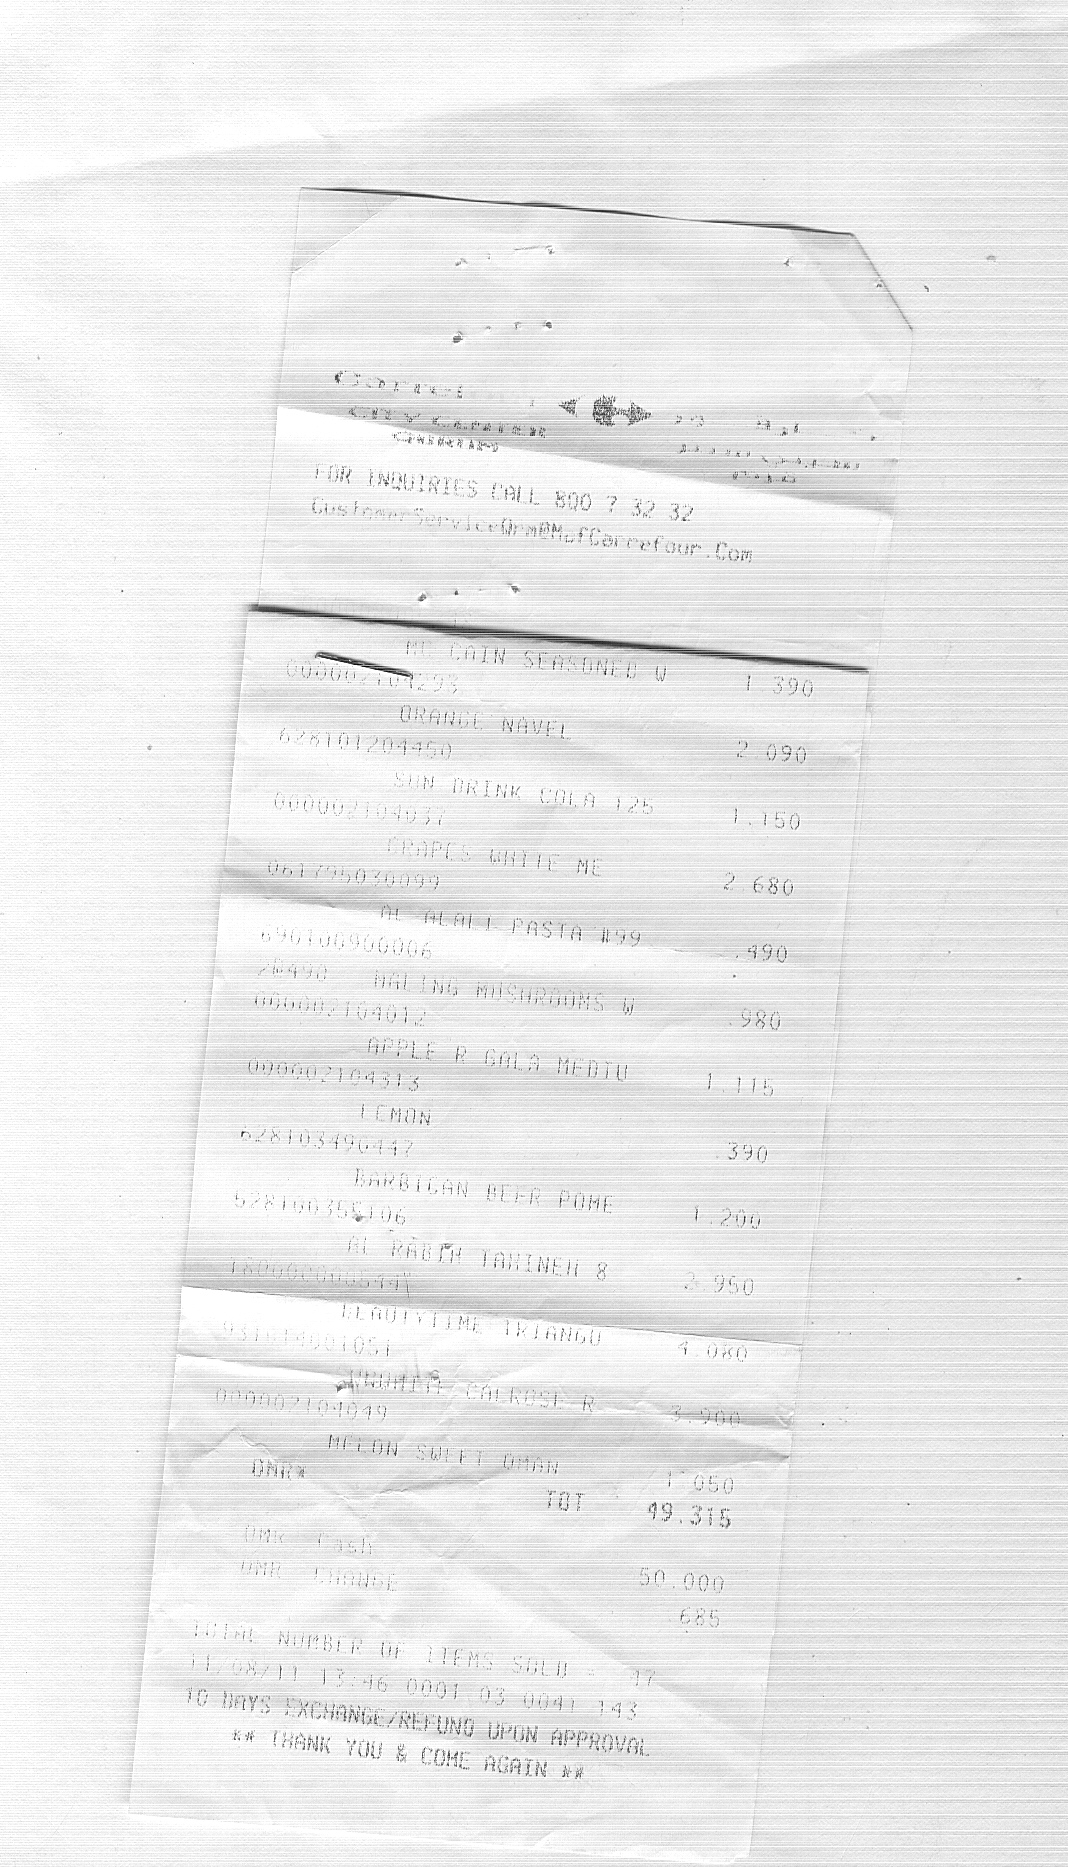 CITY CENTRE
FOR INQUIRIES CALL 800 7 32 32
CustomerServiceOrm@MafCarrefour.Com
MC CAIN SEASONED W 1.390
000002104293
ORANGE NAVEL 2.090
628101204450
SUN DRINK COLA 125 1.150
000002104037
GRAPES WHITE ME 2.680
061795030099
AL ALALI PASTA #99 .490
690100900006
2@490 MALING MUSHROOMS W .980
000002104012
APPLE R GALA MEDIU 1.115
000002104313
LEMON .390
628103496447
BARBICAN BEER POME 1.200
AL RABIH TAHINEH 8 2.950
BEAUTYTIME TRIANGU 4.080
CALROSE R 3.900
000002104049
MELON SWEET OMAN 1.050
OMR* TOT 49.315
OMR Cash 50.000
OMR CHANGE .685
TOTAL NUMBER OF ITEMS SOLD = 47
11/08/11 13:46 0001 03 0041 143
10 DAYS EXCHANGE/REFUND UPON APPROVAL
** THANK YOU & COME AGAIN **